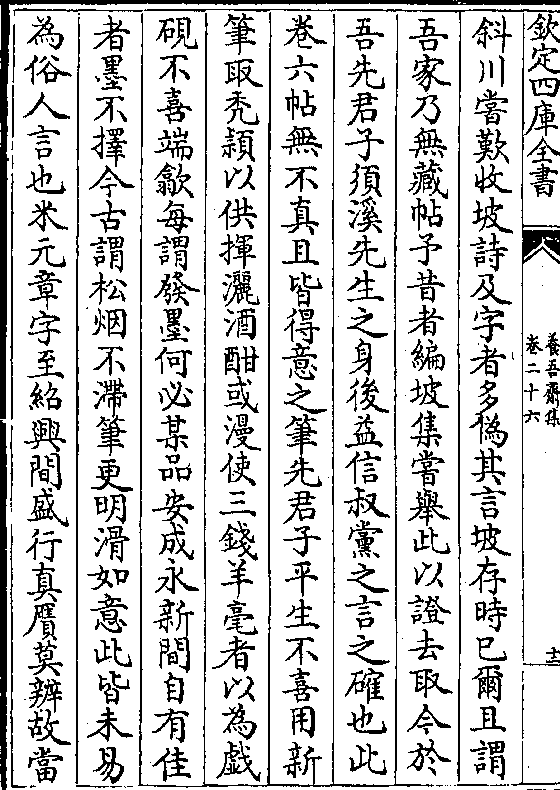 欽定四庫全書
養吾齋集
卷二十六
十三
斜川嘗歎收坡詩及字者多偽其言坡存時已爾且謂
吾家乃無藏帖予昔者編坡集嘗舉此以證去取今於
吾先君子須溪先生之身後益信叔黨之言之確也此
卷六帖無不真且皆得意之筆先君子平生不喜用新
筆取禿頴以供揮灑酒酣或漫使三錢羊毫者以為戱
硯不喜端歙每謂發墨何必某品安成永新間自有佳
者墨不擇今古謂松烟不滯筆更明滑如意此皆未易
為俗人言也米元章字至紹興間盛行真贋莫辨故當